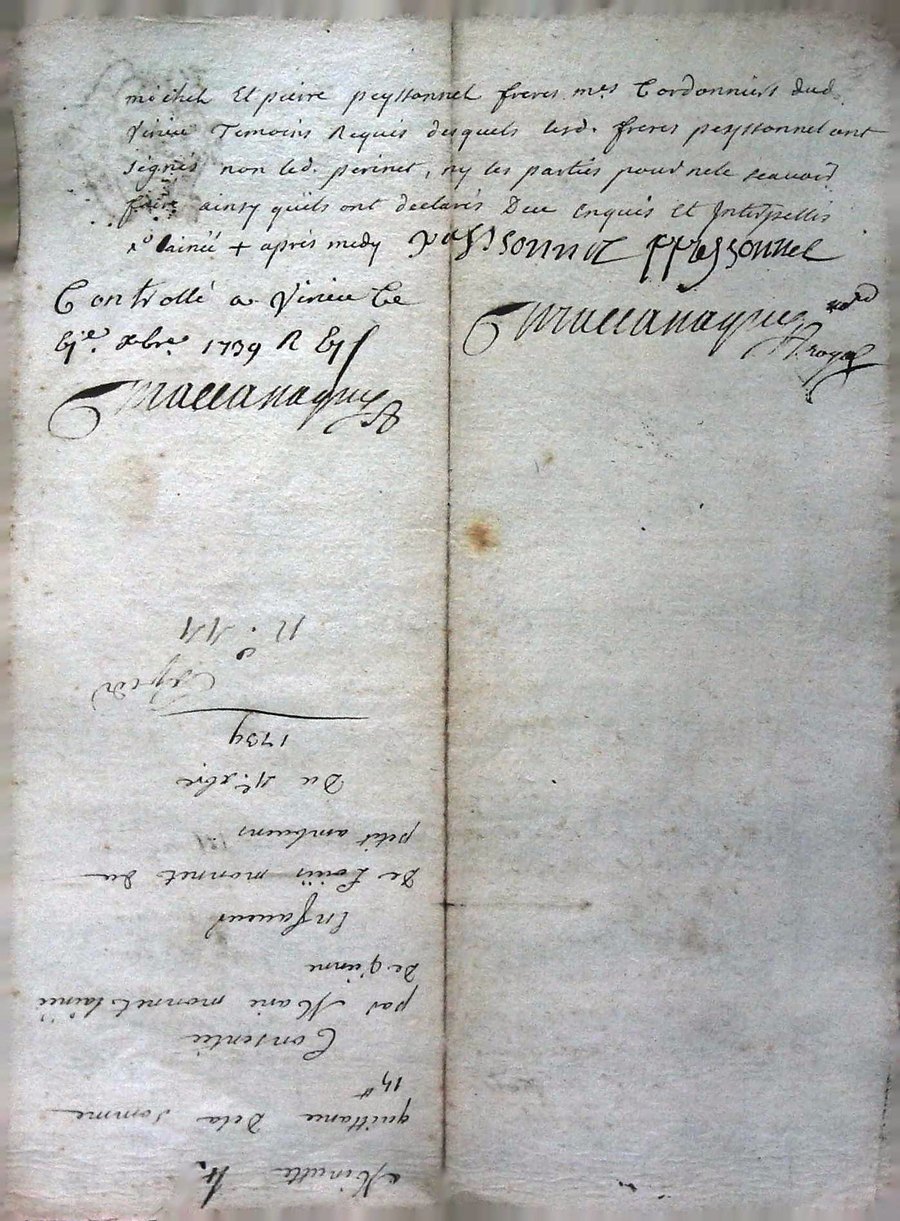 michel Et pierre peyssonnel freres m.es Cordonniers dud.
Virieu Temoins Requis desquels lesd. freres peyssonnel ont
signés non led. perinet, ny les parties pour ne le scavoir
faire ainsy qu'ils ont declarés Deu Enquis Et Interpellés
lainée + aprés midy peyssonnel ppeyssonnel
Controllé a Virieu Le
xbre 1739 R
Maccanaquy
Maccanaquy
Royal
Minutte 4.
quittance Dela somme
14tt
Consentie
par Marie monnet lainée
De
En faveur
De Loüis monnet du
petit
Du 4e xbre
1739
Expedié
n.o 44